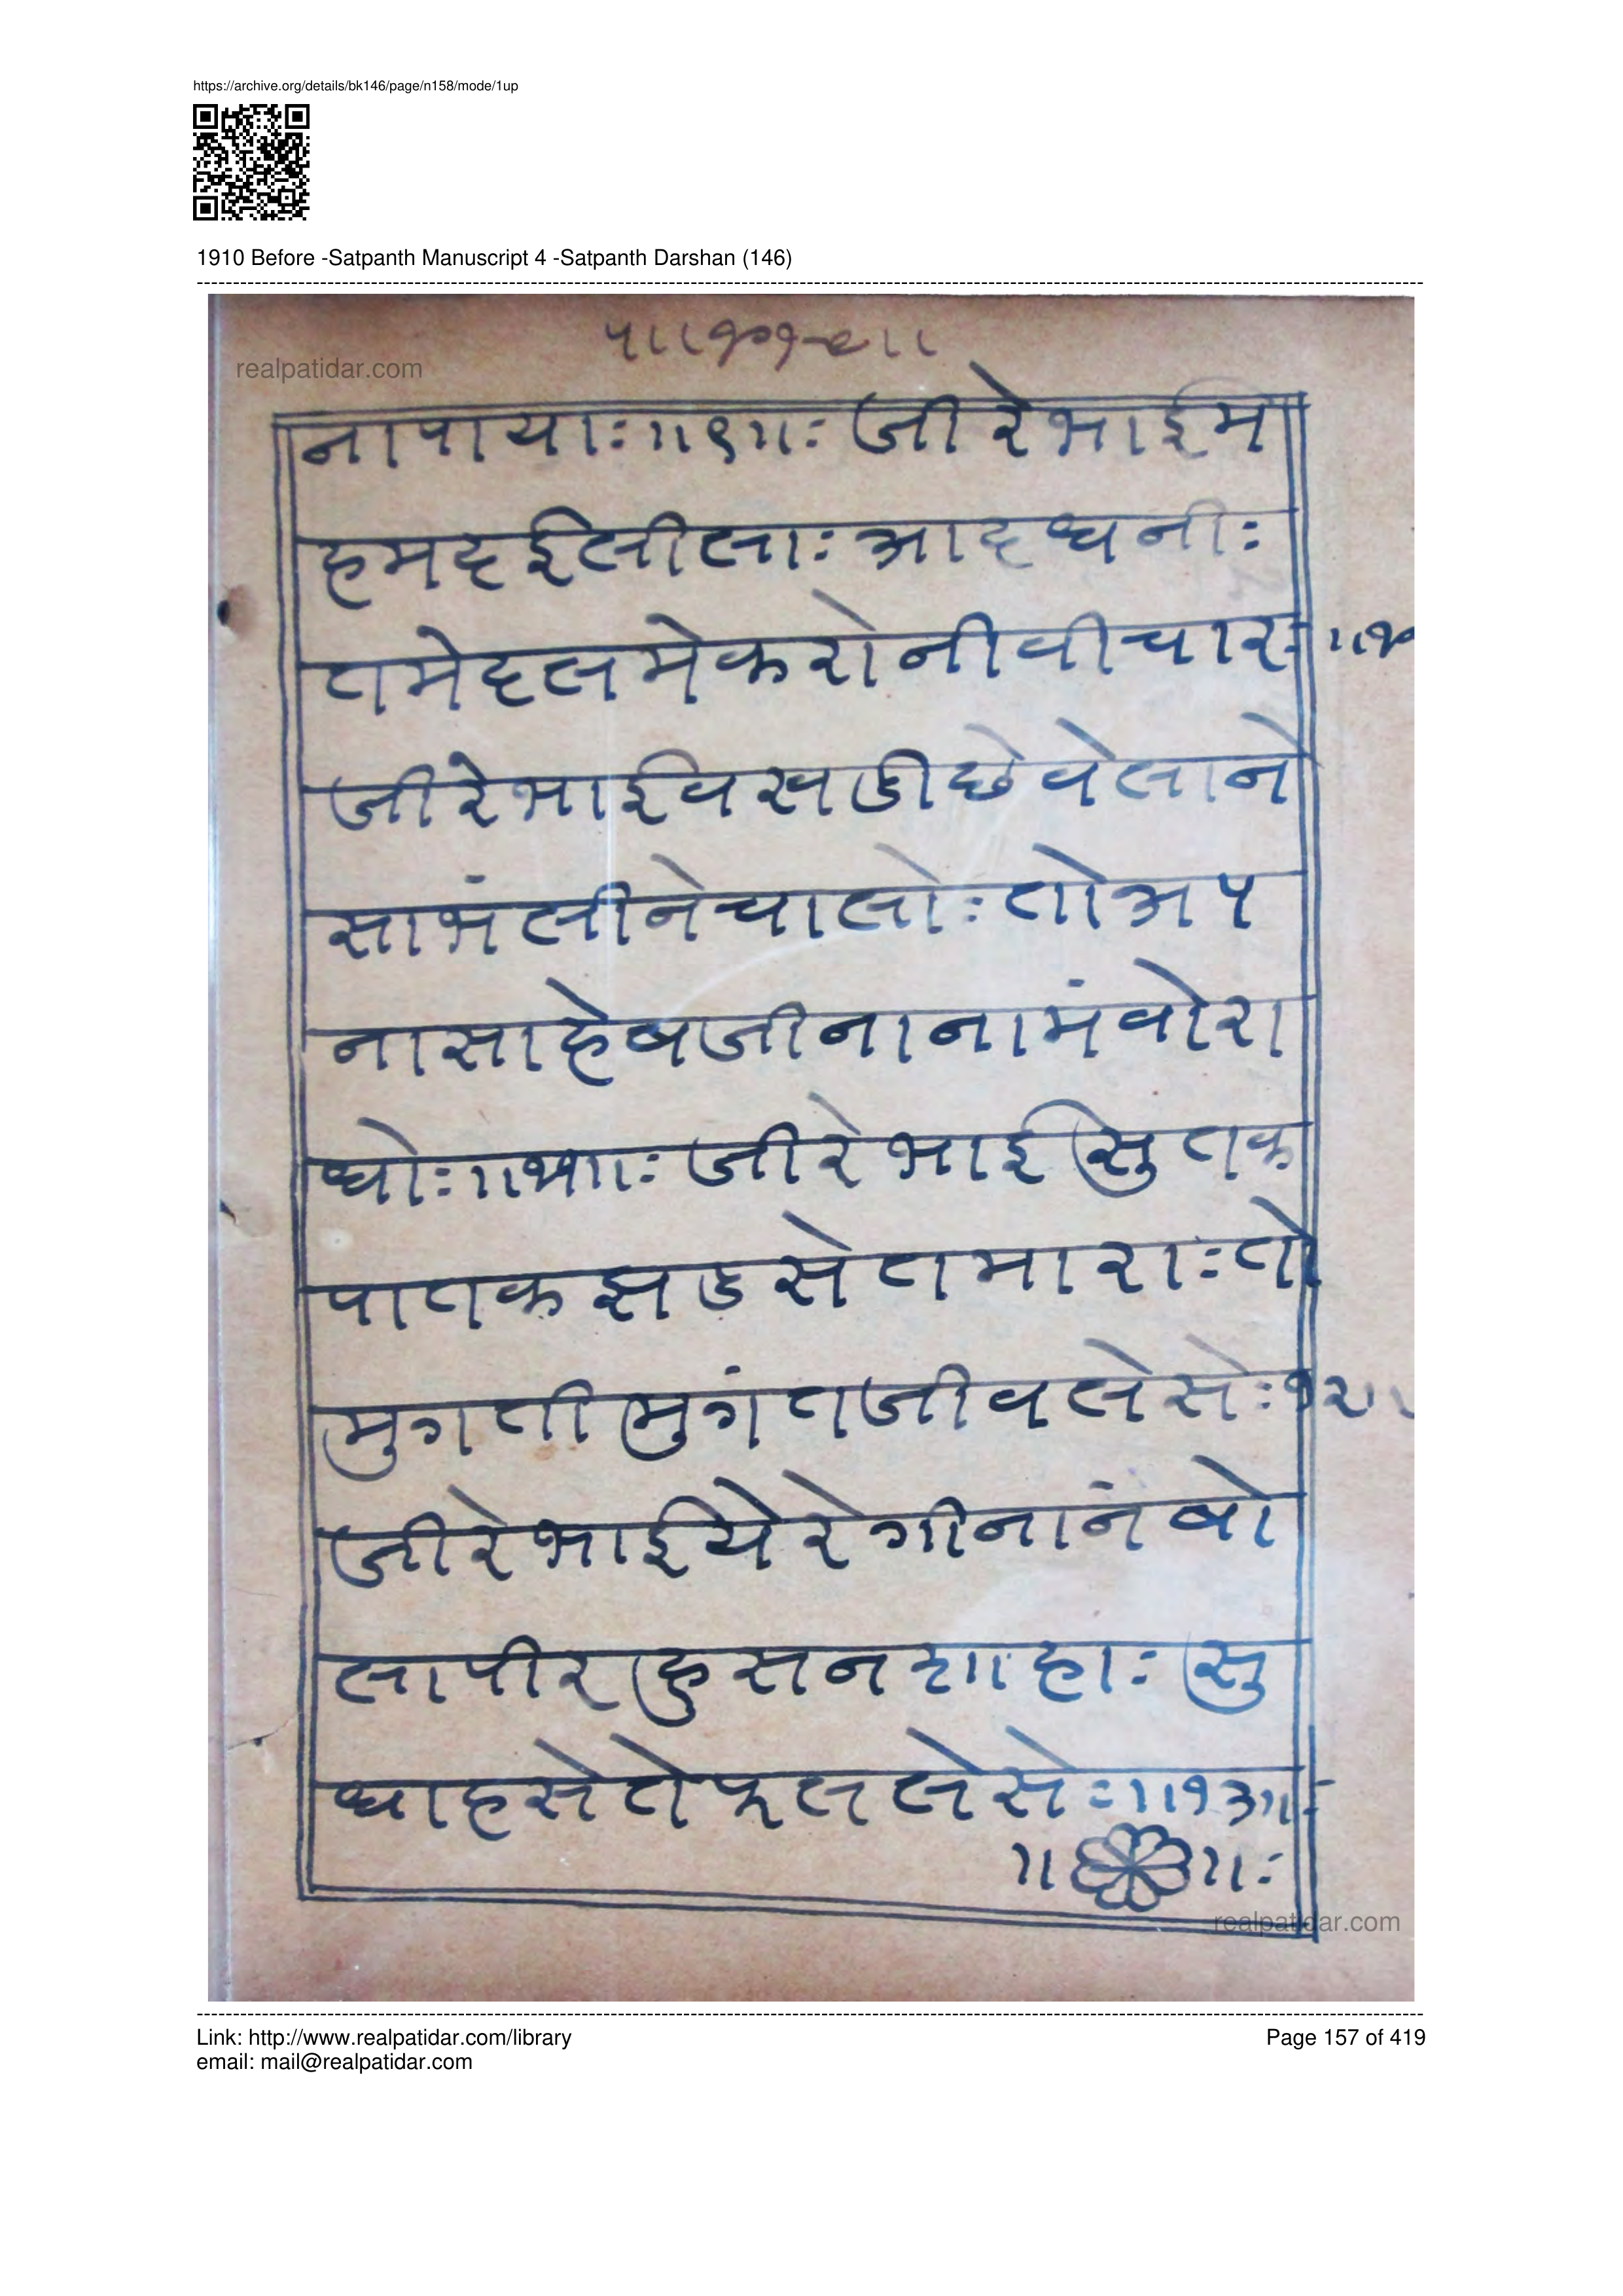 https://archive.org/details/bk146/page/n158/mode/1up
1910 Before -Satpanth Manuscript 4 -Satpanth Darshan (146)
realpatidar.com
नापायाः॥९॥ः जीरेभाईम
हमदईलीलाः आदधनीः
तमेदलमेकरोनीवीचारः
जीरेभाईवसखडीछेवेलाने
साभंलीनेचालोः तोअप
नासाहेबजीनानामंवोरा
धोः॥११॥ः जीरेभाईसुतक
पातकझडसेतमाराः तो
मुगतीमुगंतजीवलेसेः१२॥
जीरेभाईयेरेगीनानंबो
लापीरहुसनशाहाः सु
धाहसेतेफललेसेः॥१३॥ः
realpatidar.com
Link: http://www.realpatidar.com/library
Page 157 of 419
email: mail@realpatidar.com